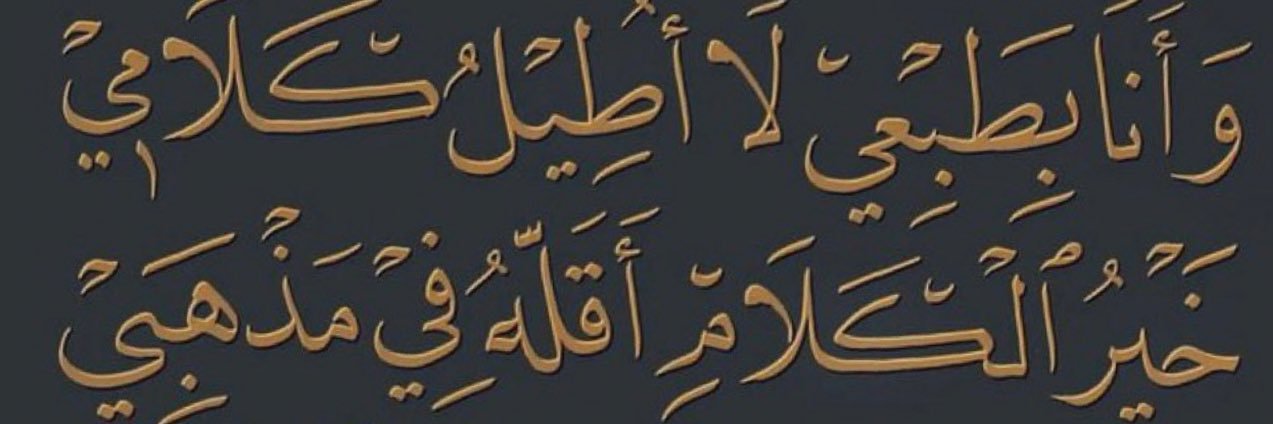 وَأَنَا بِطَبْعِيْ لَا أُطِيْلُ كَلَامِيْ
خَيْرُ ٱلْكَلَامِ أَقَلُّهُ فِيْ مَذْهَبِيْ